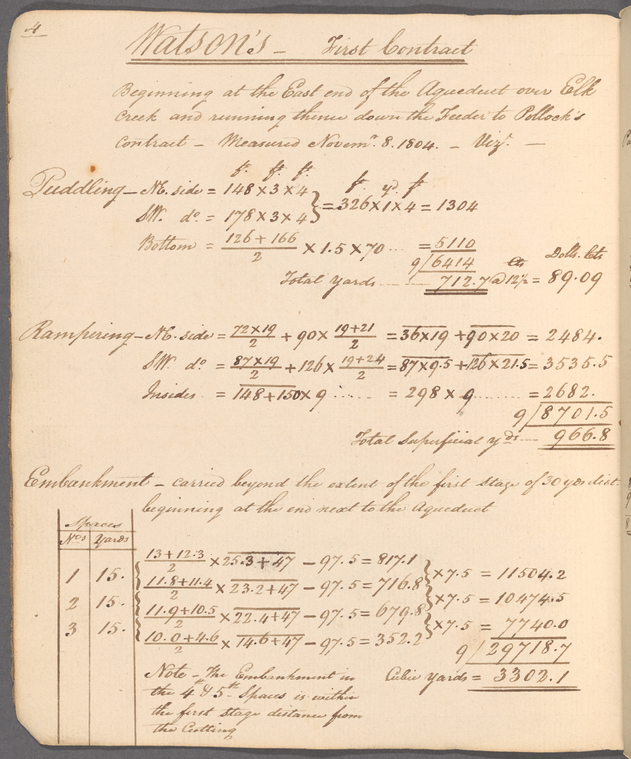 4
Watson's — First Contract
Beginning at the East end of the Aqueduct over Elk
Creek and running thence down the Feeder to Pollock's
Contract — Measured Novemr. 8. 1804. — Vizt. —
ft. ft. ft. ft. yd. ft
Puddling — NE. side = 148 × 3 × 4 } = 326 × 1 × 4 = 1304
SW. do. = 178 × 3 × 4
Bottom = 126 + 166 / 2 × 1.5 × 70 ... = 5110
9 / 6414 Cts Dolls. Cts
Total Yards ... 712.7 @ 12½ = 89.09
Rampering — NE. side = 72×19 / 2 + 90 × 19+21 / 2 = 36×19 + 90×20 = 2484.
SW. do. = 87×19 / 2 + 126 × 19+24 / 2 = 87×9.5 + 126×21.5 = 3535.5
Insides = 148+150 × 9 ...... = 298 × 9 ....... = 2682.
9 / 8701.5
Total Superficial yds — 966.8
Embankment — carried beyond the extent of the first stage of 30 yds dist.
beginning at the end next to the Aqueduct
Spaces
Nos Yards
13+12.3 / 2 × 25.3+47 — 97.5 = 817.1
1 15. } × 7.5 = 11504.2
11.8+11.4 / 2 × 23.2+47 — 97.5 = 716.8
2 15. } × 7.5 = 10474.5
11.9+10.5 / 2 × 22.4+47 — 97.5 = 679.8
3 15. } × 7.5 = 7740.0
10.0+4.6 / 2 × 14.6+47 — 97.5 = 352.2
9 / 29718.7
Cubic Yards = 3302.1
Note — The Embankment in
the 4th & 5th Spaces is within
the first stage distance from
the Cutting